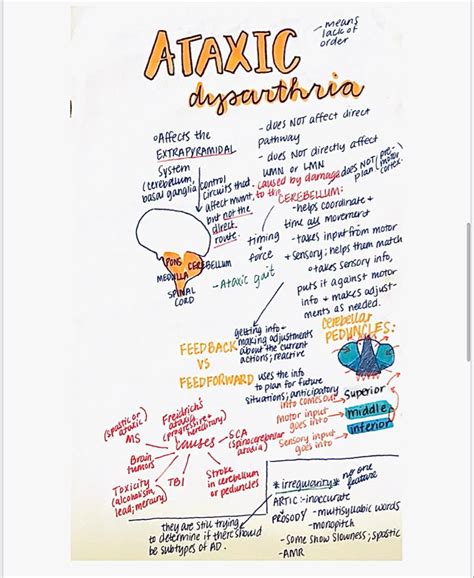 - means
lack of
order
ATAXIC
dysarthria
Affects the
EXTRAPYRAMIDAL
system
(cerebellum,
basal ganglia)
control
circuits that
affect mvmt,
but not the
direct
route.
- does NOT affect direct
pathway
- does NOT directly affect
UMN or LMN
does NOT
plan
(pre-
motor
cortex.
caused by damage
to the
CEREBELLUM:
- helps coordinate +
time all movement
timing
+
force
- takes input from motor
+ sensory; helps them match
takes sensory info,
puts it against motor
info + makes adjust-
ments as needed.
PONS
CEREBELLUM
MEDULLA
SPINAL
CORD
- Ataxic gait
FEEDBACK
getting info +
making adjustments
about the current
actions; reactive
VS
FEEDFORWARD
uses the info
to plan for future
situations; anticipatory
Cerebellar
PEDUNCLES:
info comes out
Superior
Motor input
goes into
middle
Sensory input
goes into
inferior
causes
(spastic or
ataxic)
MS
Freidrich's
ataxia
(progressive +
hereditary)
SCA
(spinocerebellar
ataxia)
Brain
tumors
Toxicity
(alcoholism,
lead; mercury)
TBI
Stroke
in cerebellum
or peduncles
they are still trying
to determine if there should
be subtypes of AD.
* irregularity *
no one
feature
ARTIC - inaccurate
PROSODY - multisyllabic words
- monopitch
- some show slowness; spastic
- AMR